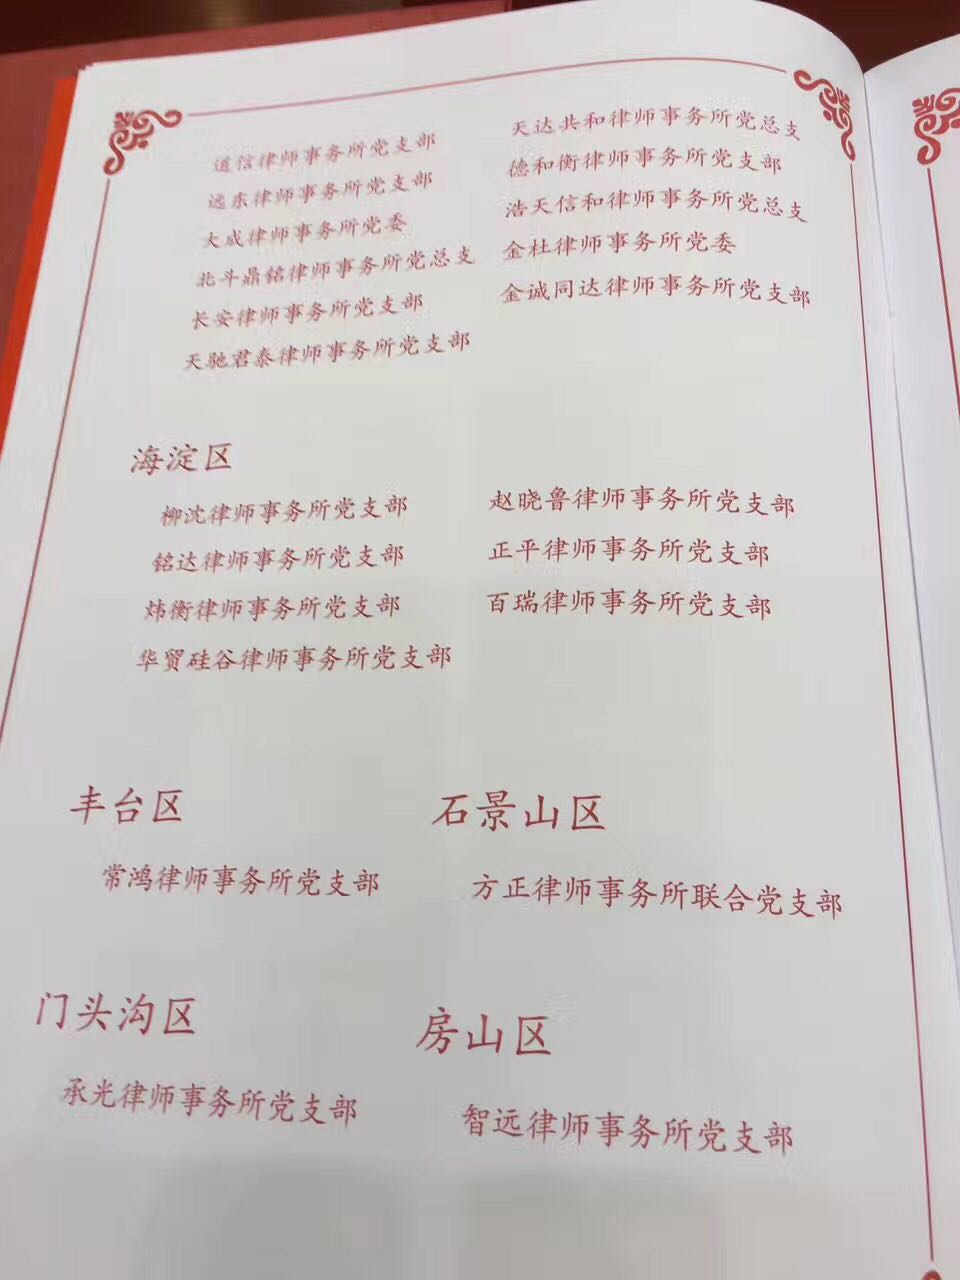 道信律师事务所党支部
远东律师事务所党支部
大成律师事务所党委
北斗鼎铭律师事务所党总支
长安律师事务所党支部
天驰君泰律师事务所党支部
天达共和律师事务所党总支
德和衡律师事务所党支部
浩天信和律师事务所党总支
金杜律师事务所党委
金诚同达律师事务所党支部
海淀区
柳沈律师事务所党支部
铭达律师事务所党支部
炜衡律师事务所党支部
华贸硅谷律师事务所党支部
赵晓鲁律师事务所党支部
正平律师事务所党支部
百瑞律师事务所党支部
丰台区
常鸿律师事务所党支部
石景山区
方正律师事务所联合党支部
门头沟区
承光律师事务所党支部
房山区
智远律师事务所党支部